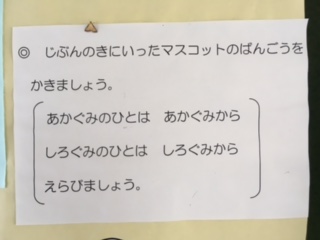 ◎ じぶんのきにいったマスコットのばんごうを
かきましょう。
あかぐみのひとは あかぐみから
しろぐみのひとは しろぐみから
えらびましょう。